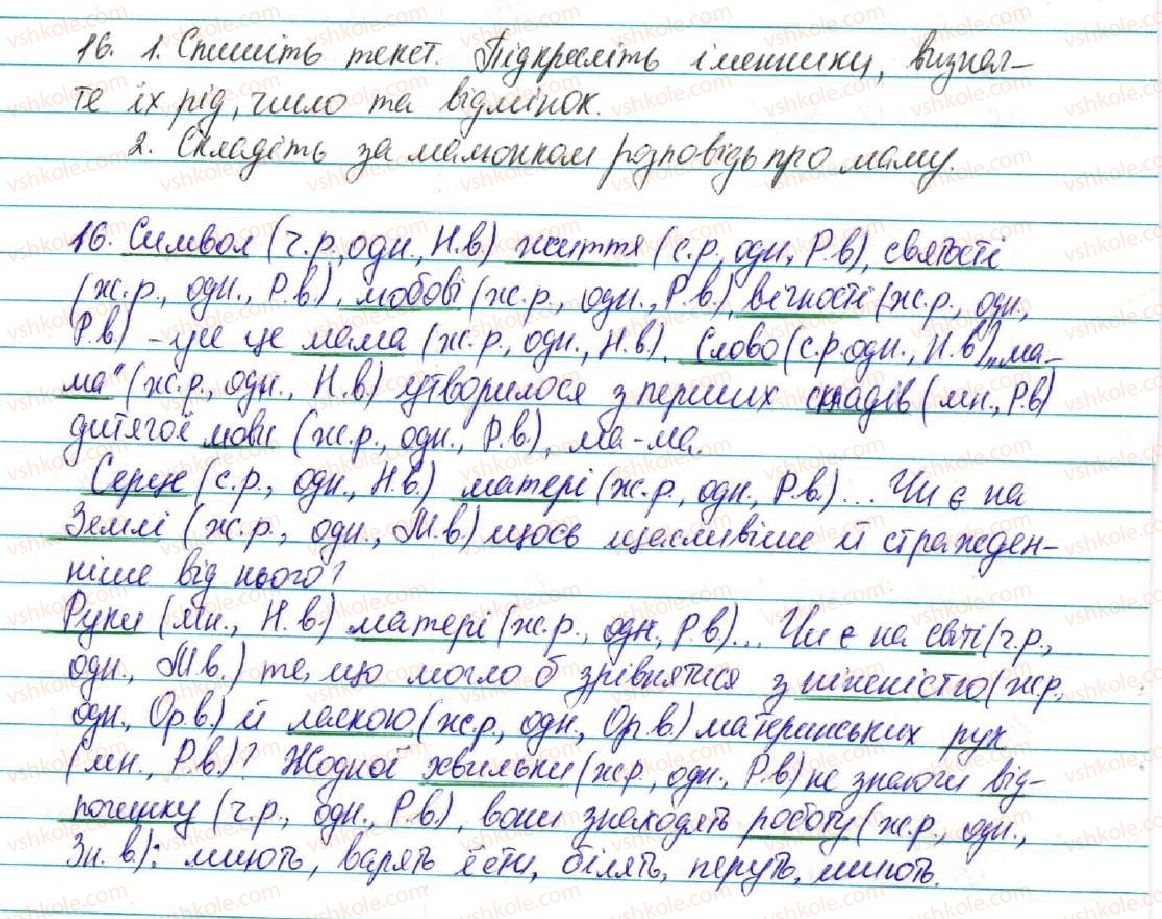 16. 1. Спишіть текст. Підкресліть іменники, визнач-
те їх рід, число та відмінок.
2. Складіть за малюнком розповідь про маму.
16. Символ (ч.р., одн., Н.в.) життя (с.р., одн., Р.в.), святості
(ж.р., одн., Р.в.), любові (ж.р., одн., Р.в.), вічності (ж.р., одн.,
Р.в.) - усе це мама (ж.р., одн., Н.в.). Слово (с.р. одн., Н.в.) „ма-
ма" (ж.р., одн., Н.в.) утворилося з перших складів (мн., Р.в.)
дитячої мови (ж.р., одн., Р.в.), ма-ма.
Серце (с.р., одн., Н.в.) матері (ж.р., одн., Р.в.)... Чи є на
Землі (ж.р., одн., М.в.) щось щасливіше й стражден-
ніше від нього?
Руки (мн., Н.в.) матері (ж.р., одн., Р.в.)... Чи є на світі (ч.р.,
одн., М.в.) те, що могло б зрівнятися з ніжністю (ж.р.,
одн., Ор.в.) й ласкою (ж.р., одн., Ор.в.) материнських рук
(мн., Р.в.)? Жодної хвильки (ж.р., одн., Р.в.) не знаючи від-
починку (ч.р., одн., Р.в.), вони знаходять роботу (ж.р., одн.,
Зн.в.): миють, варять їсти, білять, перуть, шиють.